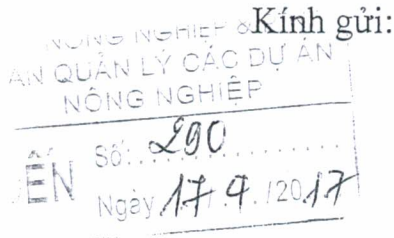 Kính gửi:
NÔNG NGHIỆP &
AN QUẢN LÝ CÁC DỰ ÁN
NÔNG NGHIỆP
ẾN
Số: 290
Ngày 17/4/2017